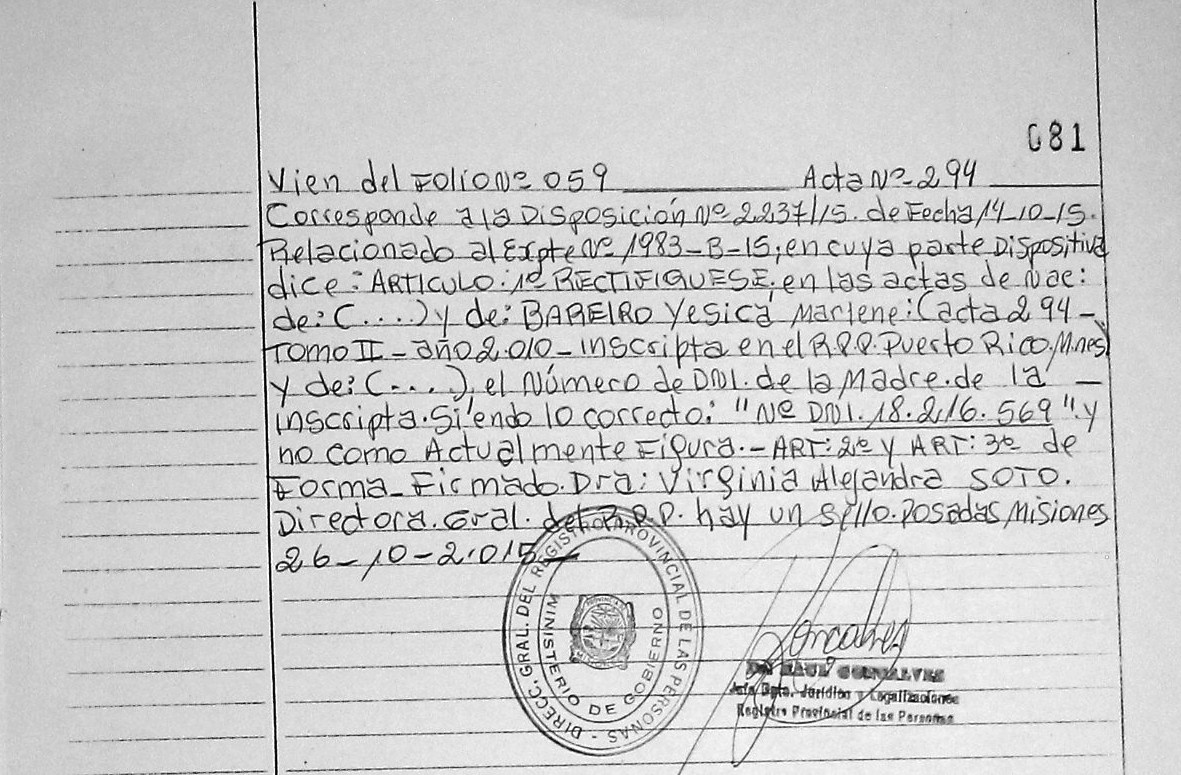 081
Vien del Folio Nº 059 Acta Nº 294
Corresponde a la Disposición Nº 2237/15. de Fecha 14-10-15.
Relacionado al Expte Nº 1983-B-15; en cuya parte Dispositiva
dice: ARTICULO: 1º RECTIFIQUESE, en las actas de Nac:
de: (....) y de: BAREIRO Yesica Marlene: (acta 294-
TOMO II - año 2.010 - inscripta en el R.P.P. Puerto Rico. Mnes)
y de: (....), el Número de DNI. de la Madre. de la -
inscripta. Siendo lo correcto: "Nº DNI. 18.216.569". y
no como Actualmente Figura.- ART: 2º y ART: 3º de
Forma - Firmado. Dra: Virginia Alejandra SOTO.
Directora. Gral. del R.P.P. hay un sello. Posadas Misiones
26-10-2.015-
DIREC. GRAL. DEL REGISTRO PROVINCIAL DE LAS PERSONAS -
MINISTERIO DE GOBIERNO
Goncalves
RAUL GONCALVES
Jefe Dpto. Jurídico y Legalizaciones
Registro Provincial de las Personas